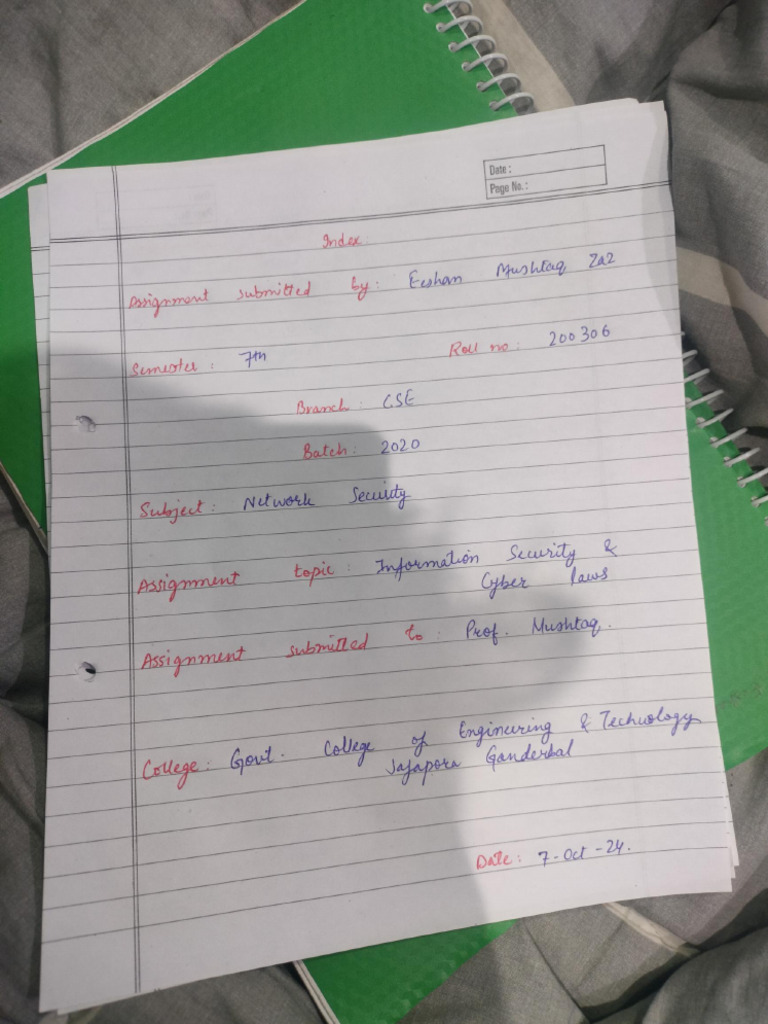 Date :
Page No. :
Index
Assignment submitted by : Eeshan Mushtaq Zaz
Semester : 7th Roll no : 200306
Branch : CSE
Batch : 2020
Subject : Network Security
Assignment topic : Information Security &
Cyber laws
Assignment submitted to : Prof. Mushtaq.
College : Govt. College of Engineering & Technology
Safapora Ganderbal
Date : 7-Oct-24.